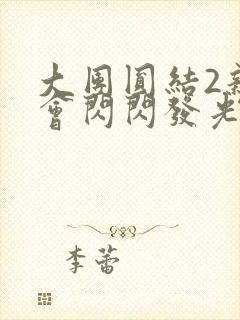 大團圓結2新
會閃閃發光
李蕾